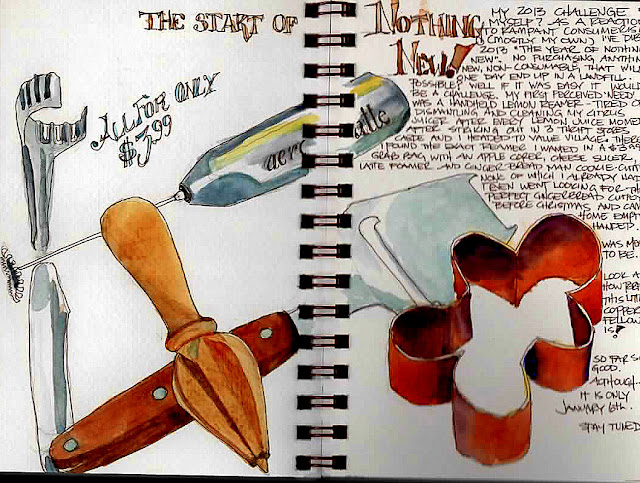 THE START OF
NOTHING
NEW!
ALL FOR ONLY
$3.99
aero latte
MY 2013 CHALLENGE
MYSELF? AS A REACTION
TO RAMPANT CONSUMERISM
(MOSTLY MY OWN) I'VE
2013 "THE YEAR OF NOTHING
NEW". NO PURCHASING ANYTHING
NEW, NON-CONSUMABLE THAT WILL
ONE DAY END UP IN A LANDFILL.
POSSIBLE? WELL IF IT WAS EASY IT WOULDN'T
BE A CHALLENGE. MY FIRST PERCEIVED NEED
WAS A HANDHELD LEMON REAMER - TIRED OF
DISMANTLING AND CLEANING MY CITRUS
JUICER AFTER EVERY LEMON SQUEEZE MOMENT
AFTER STRIKING OUT IN 3 THRIFT STORES
AND I HEADED TO VALUE VILLAGE. THERE
I FOUND THE EXACT REAMER I WANTED IN A $3.99
GRAB BAG WITH AN APPLE CORER, CHEESE SLICER,
LATTE FOAMER AND GINGER BREAD MAN COOKIE CUTTER
NONE OF WHICH I ALREADY HAD
I EVEN WENT LOOKING FOR
PERFECT GINGERBREAD CUTTER
BEFORE CHRISTMAS AND CAME
HOME EMPTY
HANDED.
WAS MEANT
TO BE.
LOOK AT
HOW REAL
THIS LITTLE
COPPER
FELLOW
IS!
SO FAR SO
GOOD.
ALTHOUGH
IT IS ONLY
JANUARY 6th.
STAY TUNED